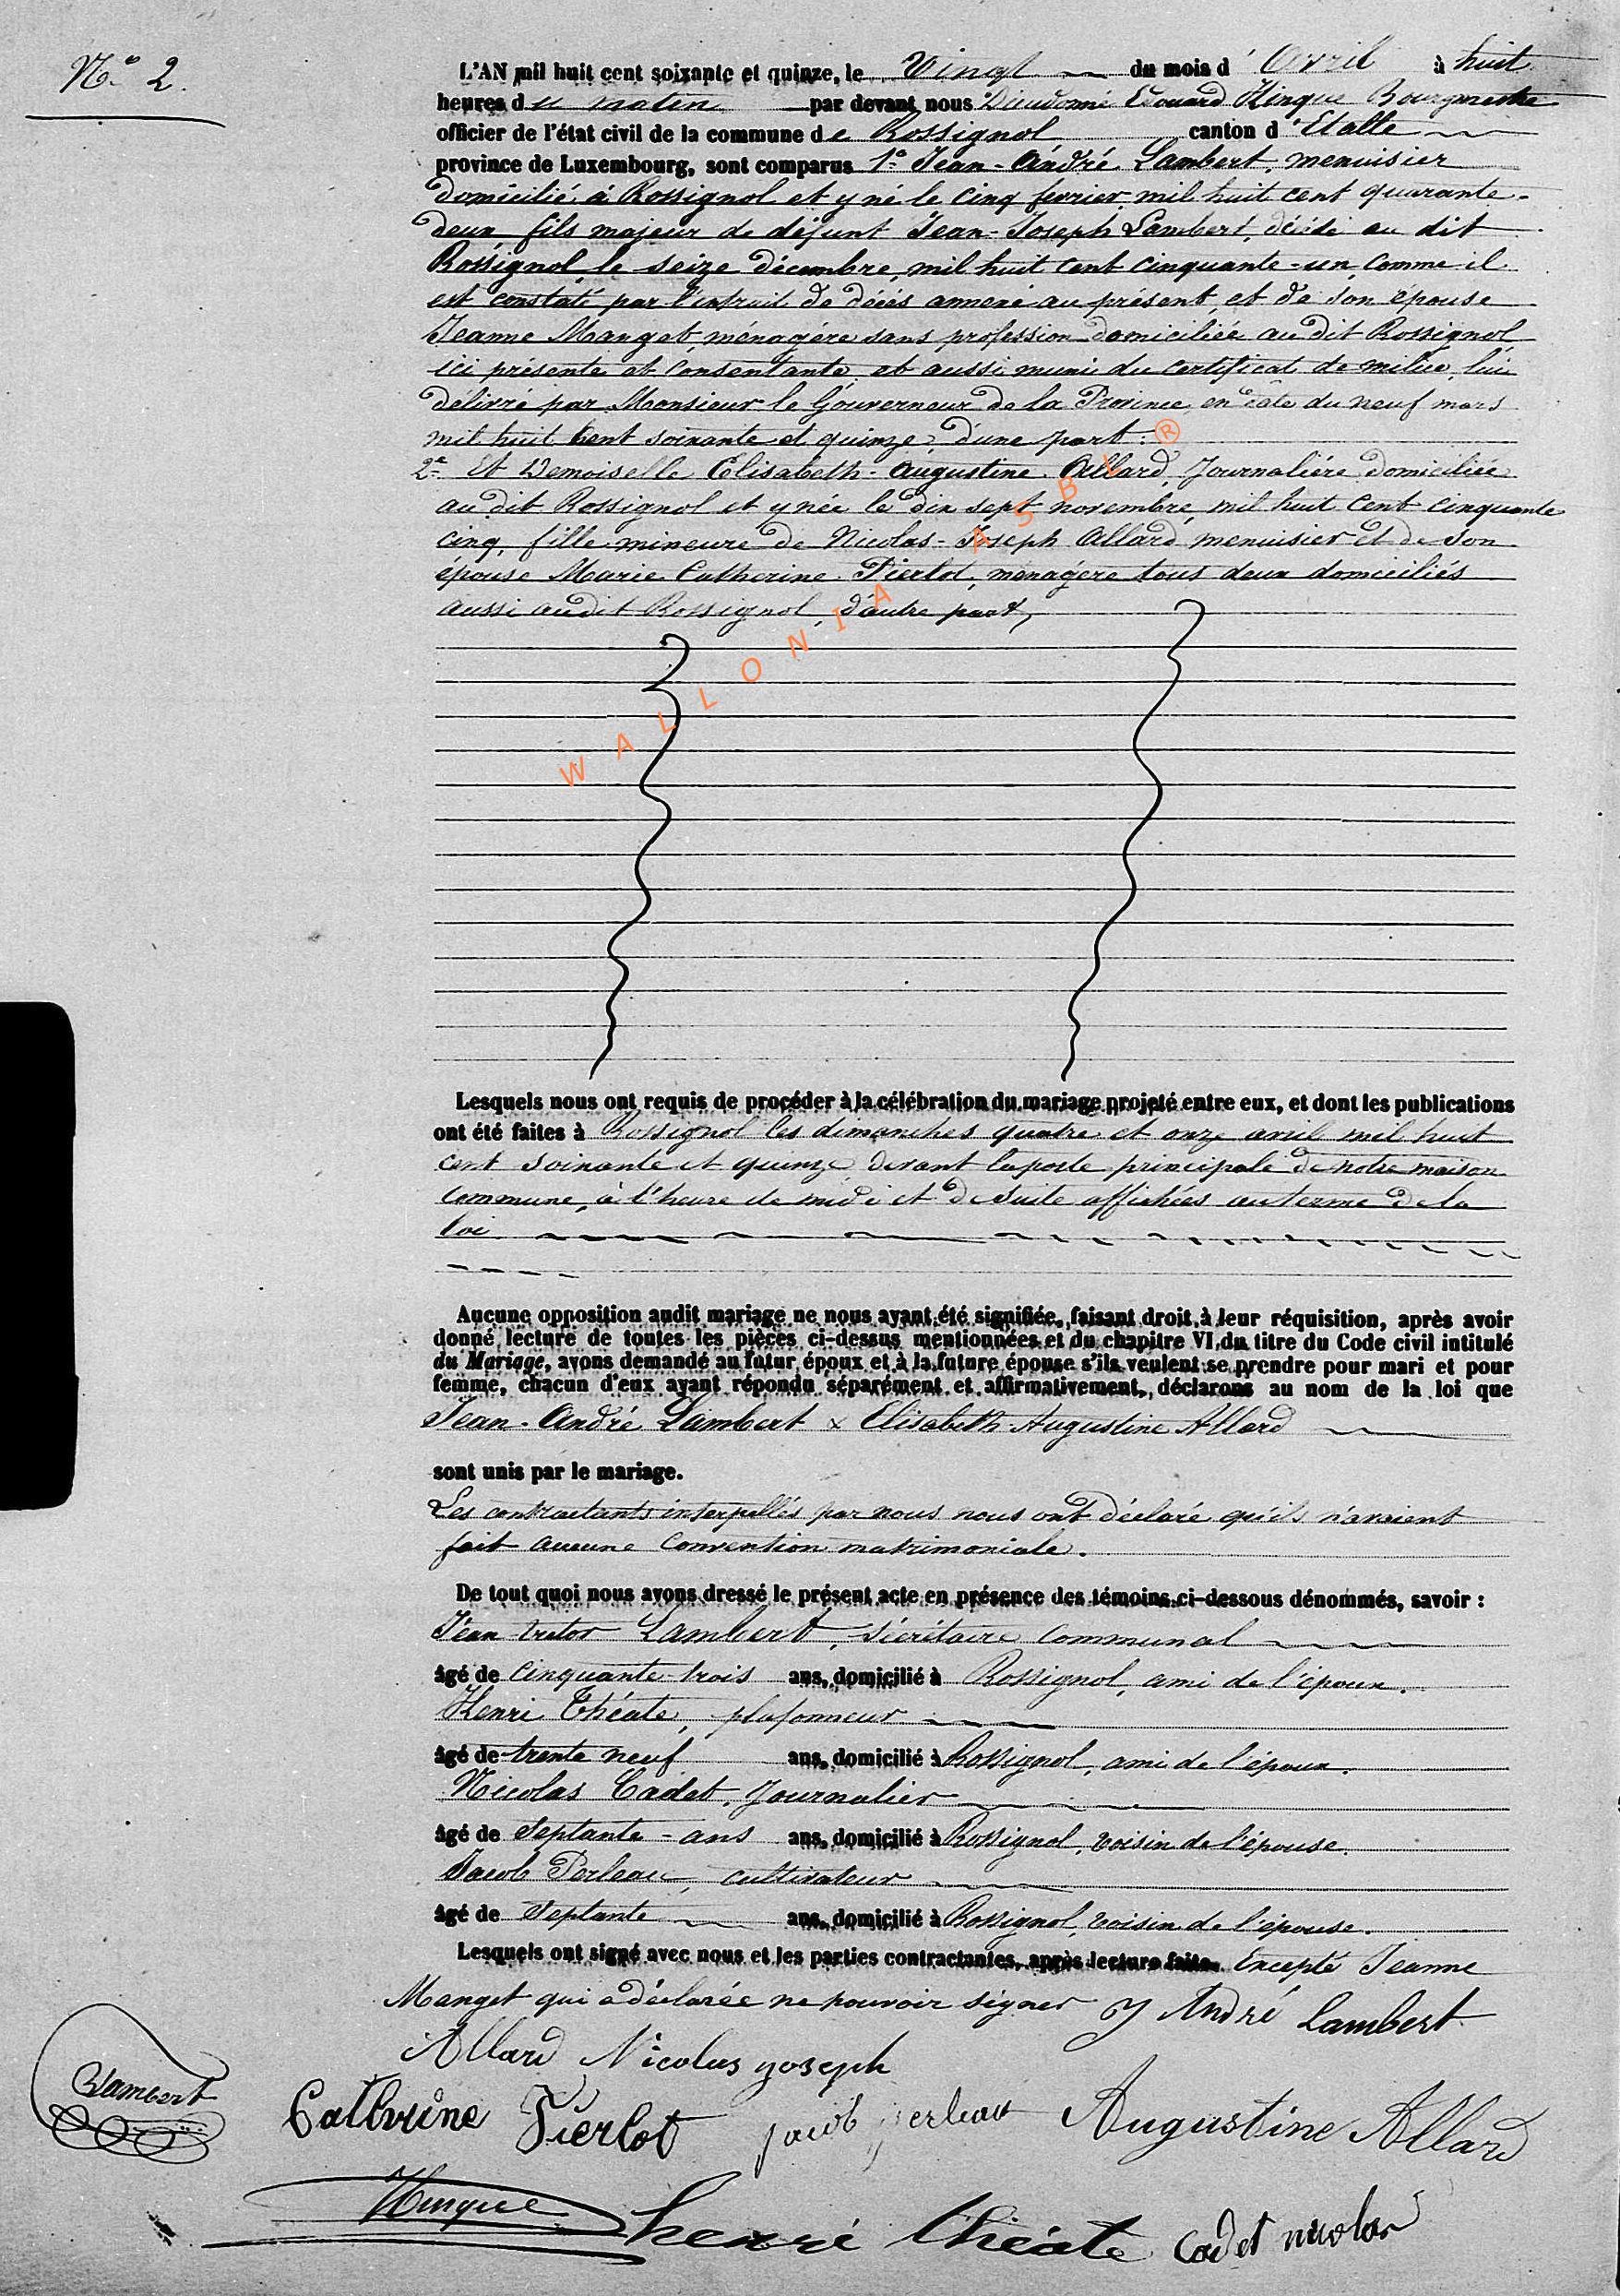 N.o 2.
L'AN mil huit cent soixante et quinze, le Vingt du mois d'Avril à huit
heures du matin par devant nous Dieudonné Edouard Hinque Bourgmestre
officier de l'état civil de la commune de Rossignol canton d'Etalle
province de Luxembourg, sont comparus 1.o Jean-André Lambert, menuisier
domicilié à Rossignol et y né le cinq fevrier mil huit cent quarante-
deux fils majeur de défunt Jean-Joseph Lambert, décédé au dit
Rossignol le seize décembre, mil huit cent cinquante-un, comme il
est constaté par l'extrait de décés annexé au présent, et de son épouse
Jeanne Manget, ménagére sans profession domiciliée au dit Rossignol
ici présente et consentante et aussi muni du certificat de milice, lui
délivré par Monsieur le Gouverneur de la Province en date du neuf mars
mil huit cent soixante et quinze, d'une part.
2.e Et Demoiselle Elisabeth-Augustine Allard, Journalière domiciliée
au dit Rossignol et y née le dix sept novembre mil huit cent cinquante
cinq, fille mineure de Nicolas-Joseph Allard menuisier et de son
épouse Marie Catherine Pierlot, ménagère tous deux domiciliés
aussi audit Rossignol, d'autre part,
WALLONIA ASBL ®
Lesquels nous ont requis de procéder à la célébration du mariage projeté entre eux, et dont les publications
ont été faites à Rossignol les dimanches quatre et onze avril mil huit
cent soixante et quinze devant la porte principale de notre maison
commune, à l'heure de midi et de suite affichées au terme de la
loi
Aucune opposition audit mariage ne nous ayant été signifiée, faisant droit à leur réquisition, après avoir
donné lecture de toutes les pièces ci-dessus mentionnées et du chapitre VI du titre du Code civil intitulé
du Mariage, avons demandé au futur époux et à la future épouse s'ils veulent se prendre pour mari et pour
femme, chacun d'eux ayant répondu séparément et affirmativement, déclarons au nom de la loi que
Jean-André Lambert & Elisabeth-Augustine Allard
sont unis par le mariage.
Les contractants interpellés par nous nous ont déclaré qu'ils n'avaient
fait aucune convention matrimoniale.
De tout quoi nous avons dressé le présent acte en présence des témoins ci-dessous dénommés, savoir :
Jean Lambert, sécrétaire communal
âgé de cinquante-trois ans, domicilié à Rossignol, ami de l'époux.
Henri Théate, plafonneur
âgé de trente neuf ans, domicilié à Rossignol, ami de l'époux.
Nicolas Cadet, Journalier
âgé de septante-ans ans, domicilié à Rossignol, voisin de l'épouse.
Jacob Perleau, cultivateur
âgé de septante ans, domicilié à Rossignol, voisin de l'épouse.
Lesquels ont signé avec nous et les parties contractantes, après lecture faite. Excepté Jeanne
Manget qui a déclarée ne pouvoir signer J André Lambert
Allard Nicolas joseph
Lambert Catherine Pierlot jacob perleau Augustine Allard
Hinque henri théate cadet nicolas